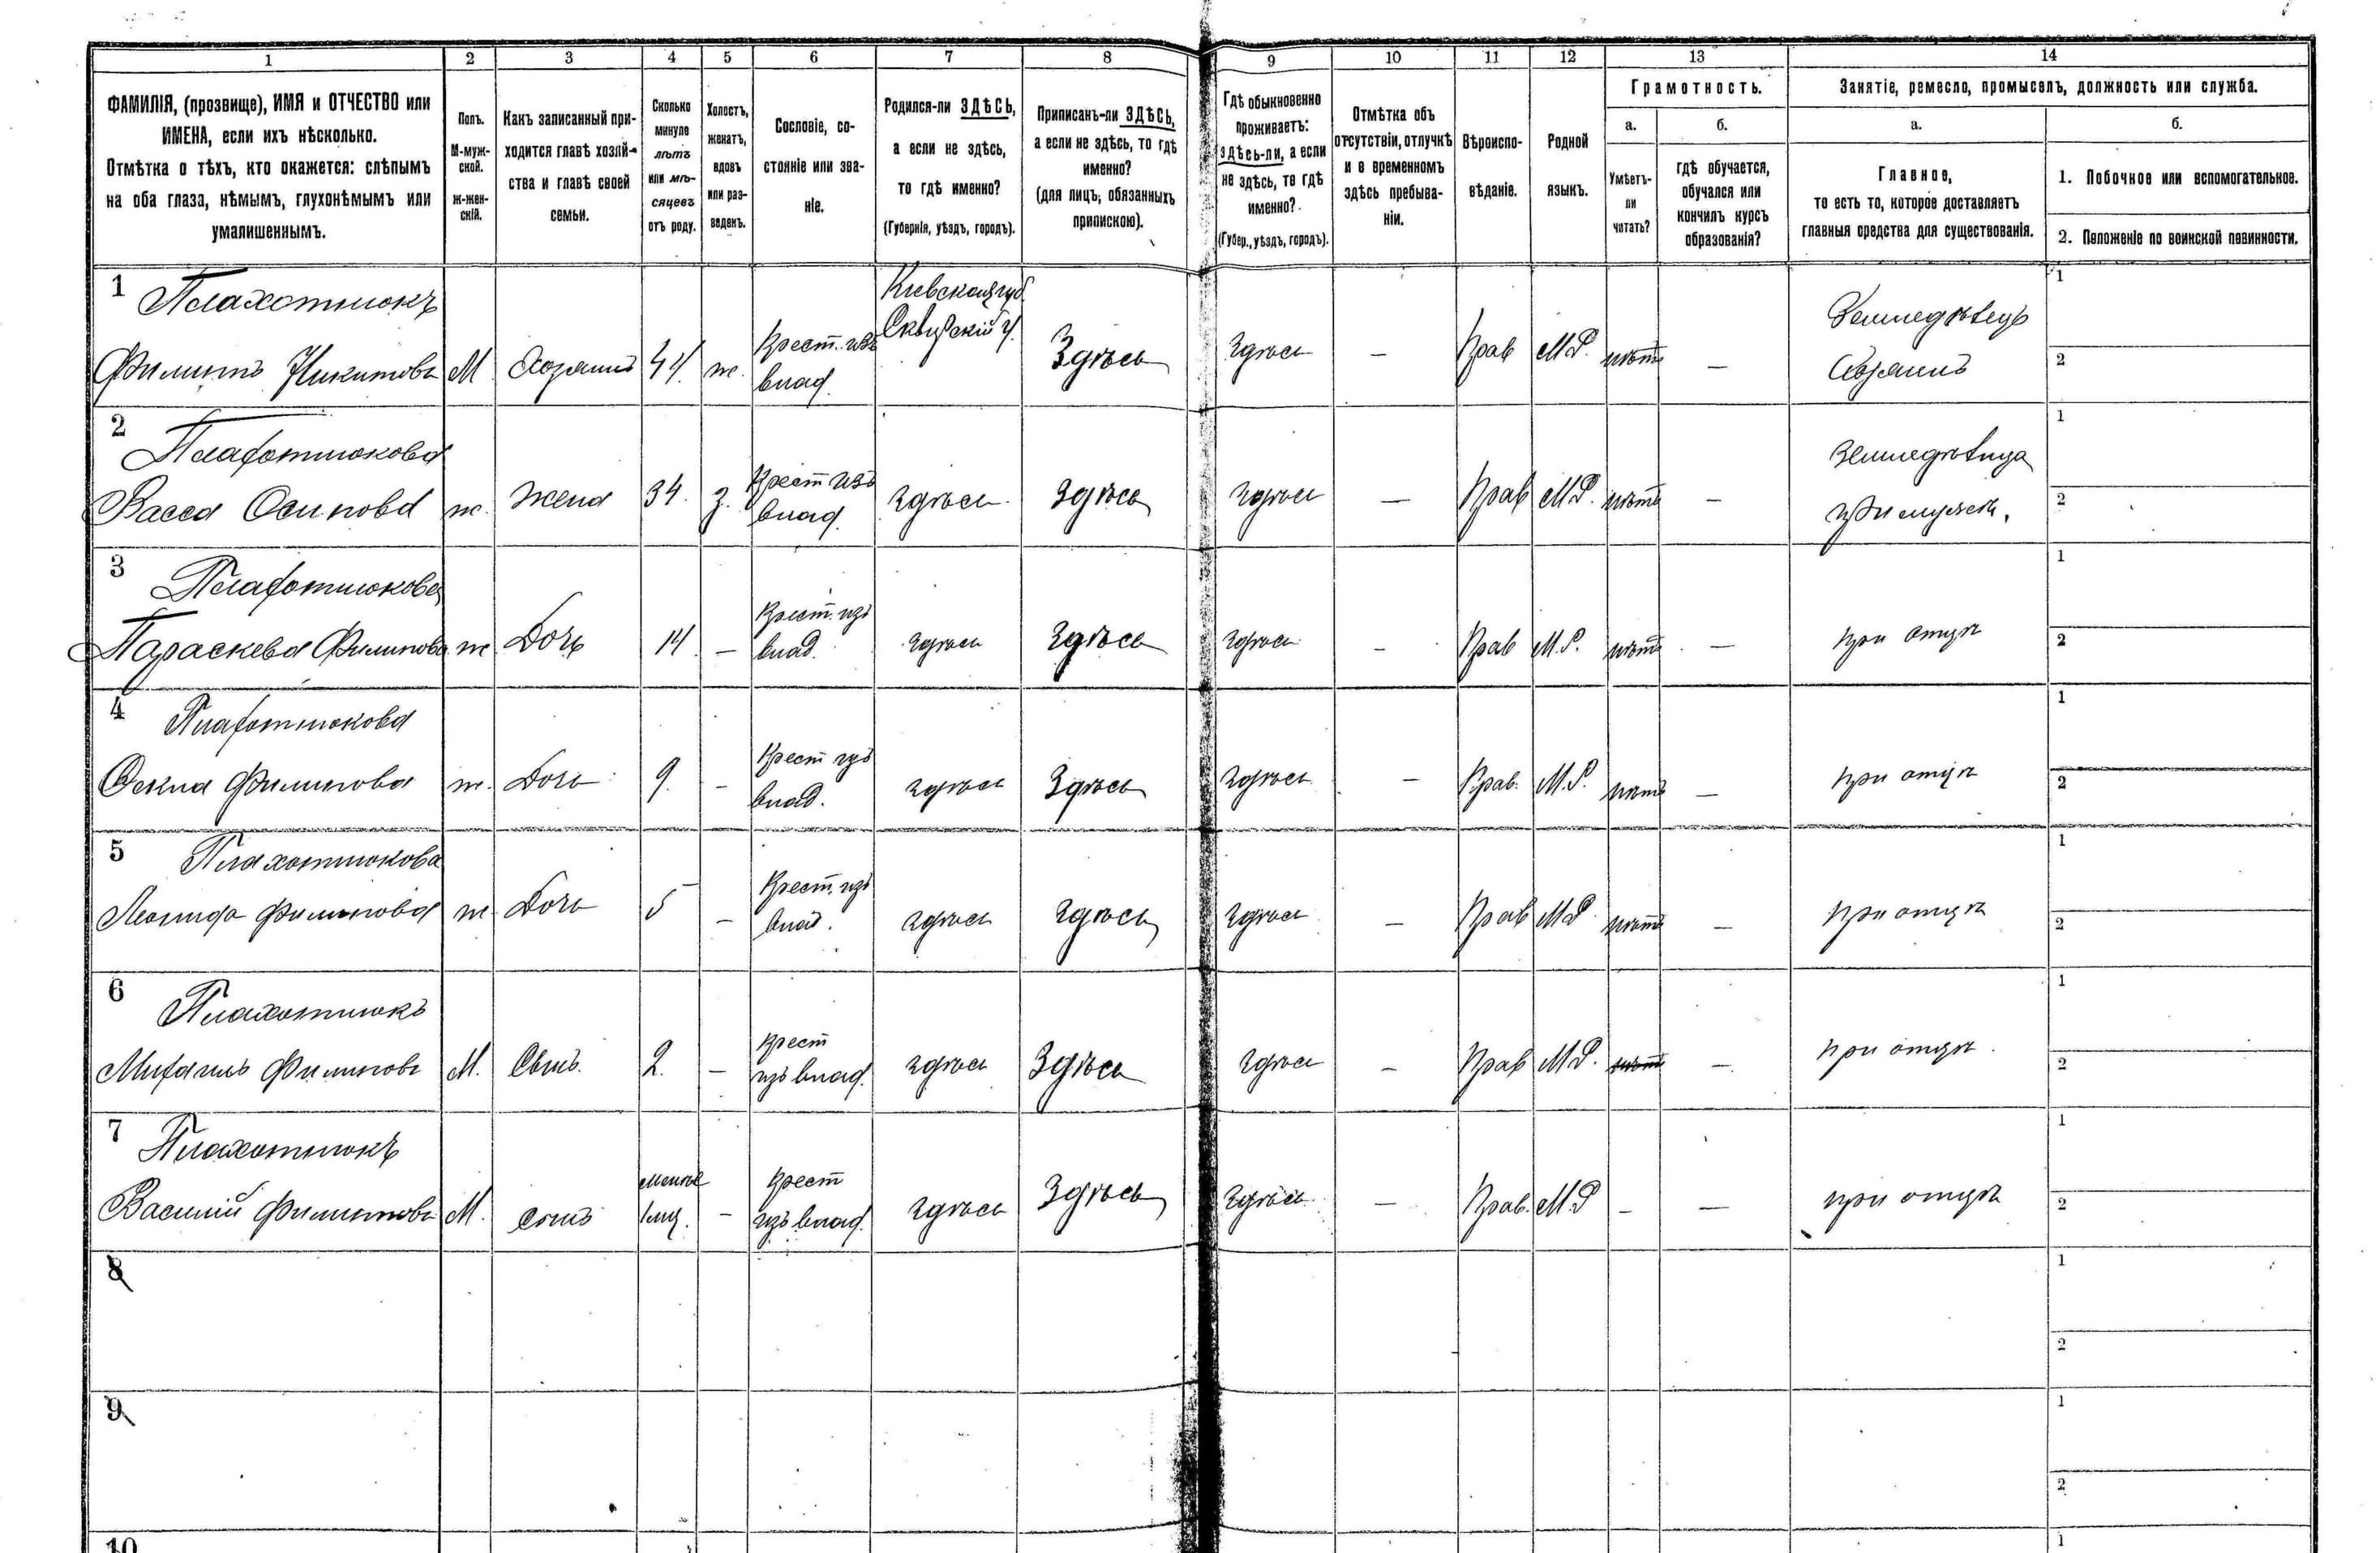 1 2 3 4 5 6 7 8 9 10 11 12 13 14
ФАМИЛІЯ, (прозвище), ИМЯ и ОТЧЕСТВО или
ИМЕНА, если ихъ нѣсколько.
Отмѣтка о тѣхъ, кто окажется: слѣпымъ
на оба глаза, нѣмымъ, глухонѣмымъ или
умалишеннымъ.
Полъ.
М-муж-
ской.
Ж-жен-
скій.
Какъ записанный при-
ходится главѣ хозяй-
ства и главѣ своей
семьи.
Сколько
минуло
лѣтъ
или мѣ-
сяцевъ
отъ роду.
Холостъ,
женатъ,
вдовъ
или раз-
веденъ.
Сословіе, со-
стояніе или зва-
ніе.
Родился-ли ЗДѢСЬ,
а если не здѣсь,
то гдѣ именно?
(Губернія, уѣздъ, городъ).
Приписанъ-ли ЗДѢСЬ,
а если не здѣсь, то гдѣ
именно?
(для лицъ, обязанныхъ
припискою).
Гдѣ обыкновенно
проживаетъ:
здѣсь-ли, а если
не здѣсь, то гдѣ
именно?
(Губер., уѣздъ, городъ).
Отмѣтка объ
отсутствіи, отлучкѣ
и о временномъ
здѣсь пребыва-
ніи.
Вѣроиспо-
вѣданіе.
Родной
языкъ.
Грамотность.
а.
Умѣетъ-
ли
читать?
б.
гдѣ обучается,
обучался или
кончилъ курсъ
образованія?
Занятіе, ремесло, промыселъ, должность или служба.
а.
Главное,
то есть то, которое доставляетъ
главныя средства для существованія.
б.
1. Побочное или вспомогательное.
2. Положеніе по воинской повинности.
1 Плахотнюкъ
Филипъ Никитовъ М Хозяинъ 44. ж. Крест. изъ влад. Кіевской губ. Сквирскій у. Здѣсь Здѣсь — Прав М.Р. нѣтъ — Земледѣлецъ Хозяинъ 1 2
2 Плахотнюкова
Васса Осипова ж. Жена 34. з. Крест изъ влад. здѣсь Здѣсь здѣсь — Прав М.Р. нѣтъ — 1 2
3 Плахотнюкова
Параскева Филипова ж. Дочь 14 — Крест. изъ влад. здѣсь Здѣсь здѣсь — Прав М.Р. нѣтъ — при отцѣ 1 2
4 Плахотнюкова
Филипова ж. Дочь 9. — Крест изъ влад. здѣсь Здѣсь здѣсь — Прав. М.Р. нѣтъ — при отцѣ 1 2
5 Плахотнюкова
Леонида Филипова ж. Дочь 5 — Крест. изъ влад. здѣсь здѣсь здѣсь — Прав М.Р нѣтъ — при отцѣ 1 2
6 Плахотнюкъ
Михаилъ Филиповъ М. Сынъ. 2. — Крест изъ влад. здѣсь Здѣсь здѣсь — Прав М.Р. нѣтъ — при отцѣ 1 2
7 Плахотнюкъ
Василій Филиповъ М. сынъ менѣе 1 мц. — Крест изъ влад. здѣсь Здѣсь здѣсь — Прав. М.Р — — при отцѣ 1 2
8 1 2
9 1 2
10 1